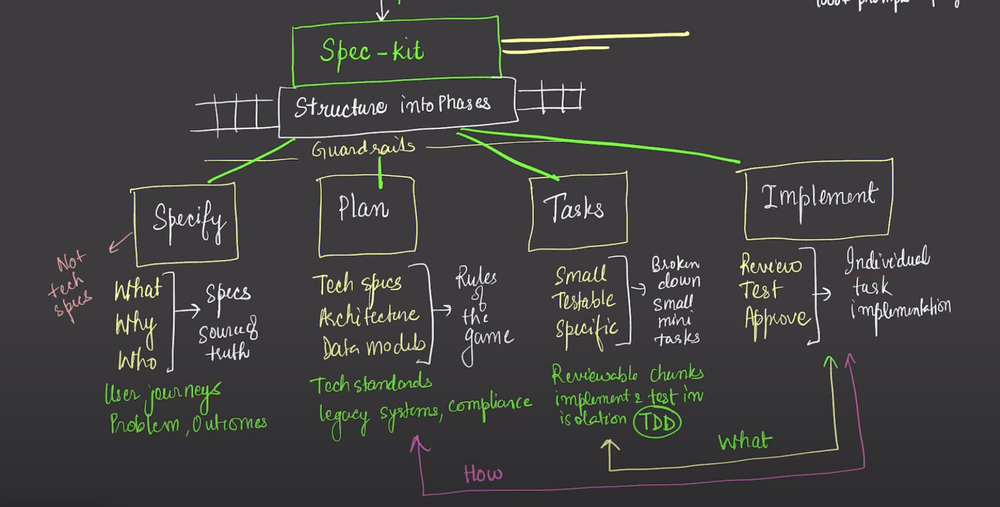 Spec-kit
Structure into Phases
Guardrails
Specify
Plan
Tasks
Implement
Not
tech
specs
What
Why
Who
Specs
Source of
truth
User journeys
Problem, Outcomes
Tech specs
Architecture
Data models
Rules
of
the
game
Tech standards
legacy systems, compliance
Small
Testable
Specific
Broken
down
Small
mini
tasks
Reviewable chunks
implement & test in
isolation TDD
Review
Test
Approve
Individual
task
implementation
What
How